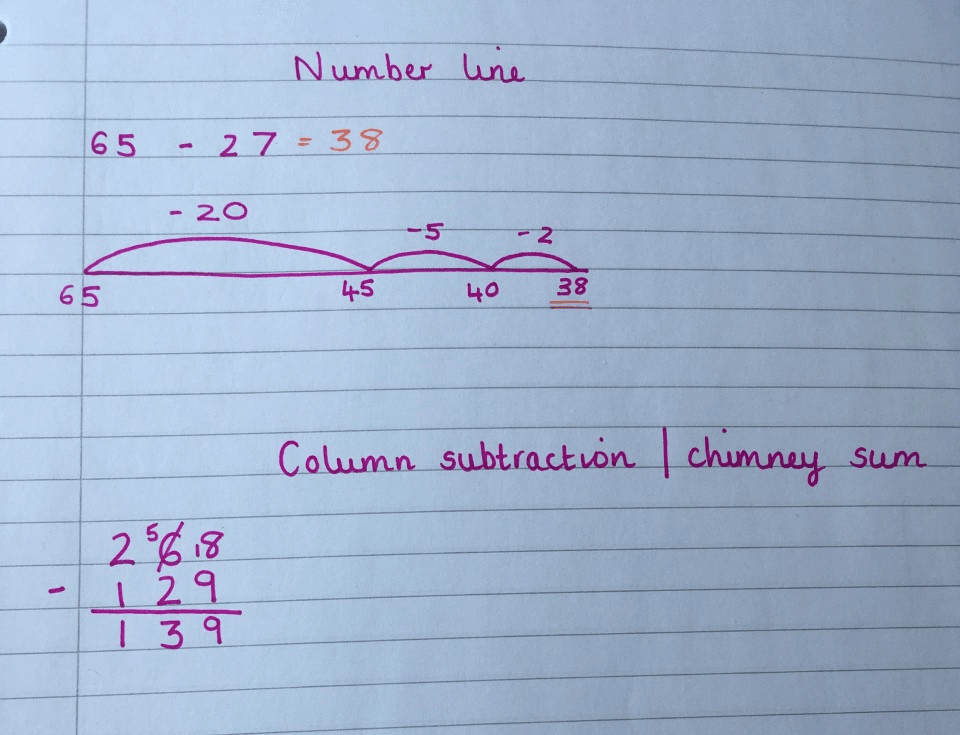 Number line
65 - 27 = 38
- 20 -5 - 2
65 45 40 38
Column subtraction | chimney sum
2 5 6 18
- 1 2 9
1 3 9